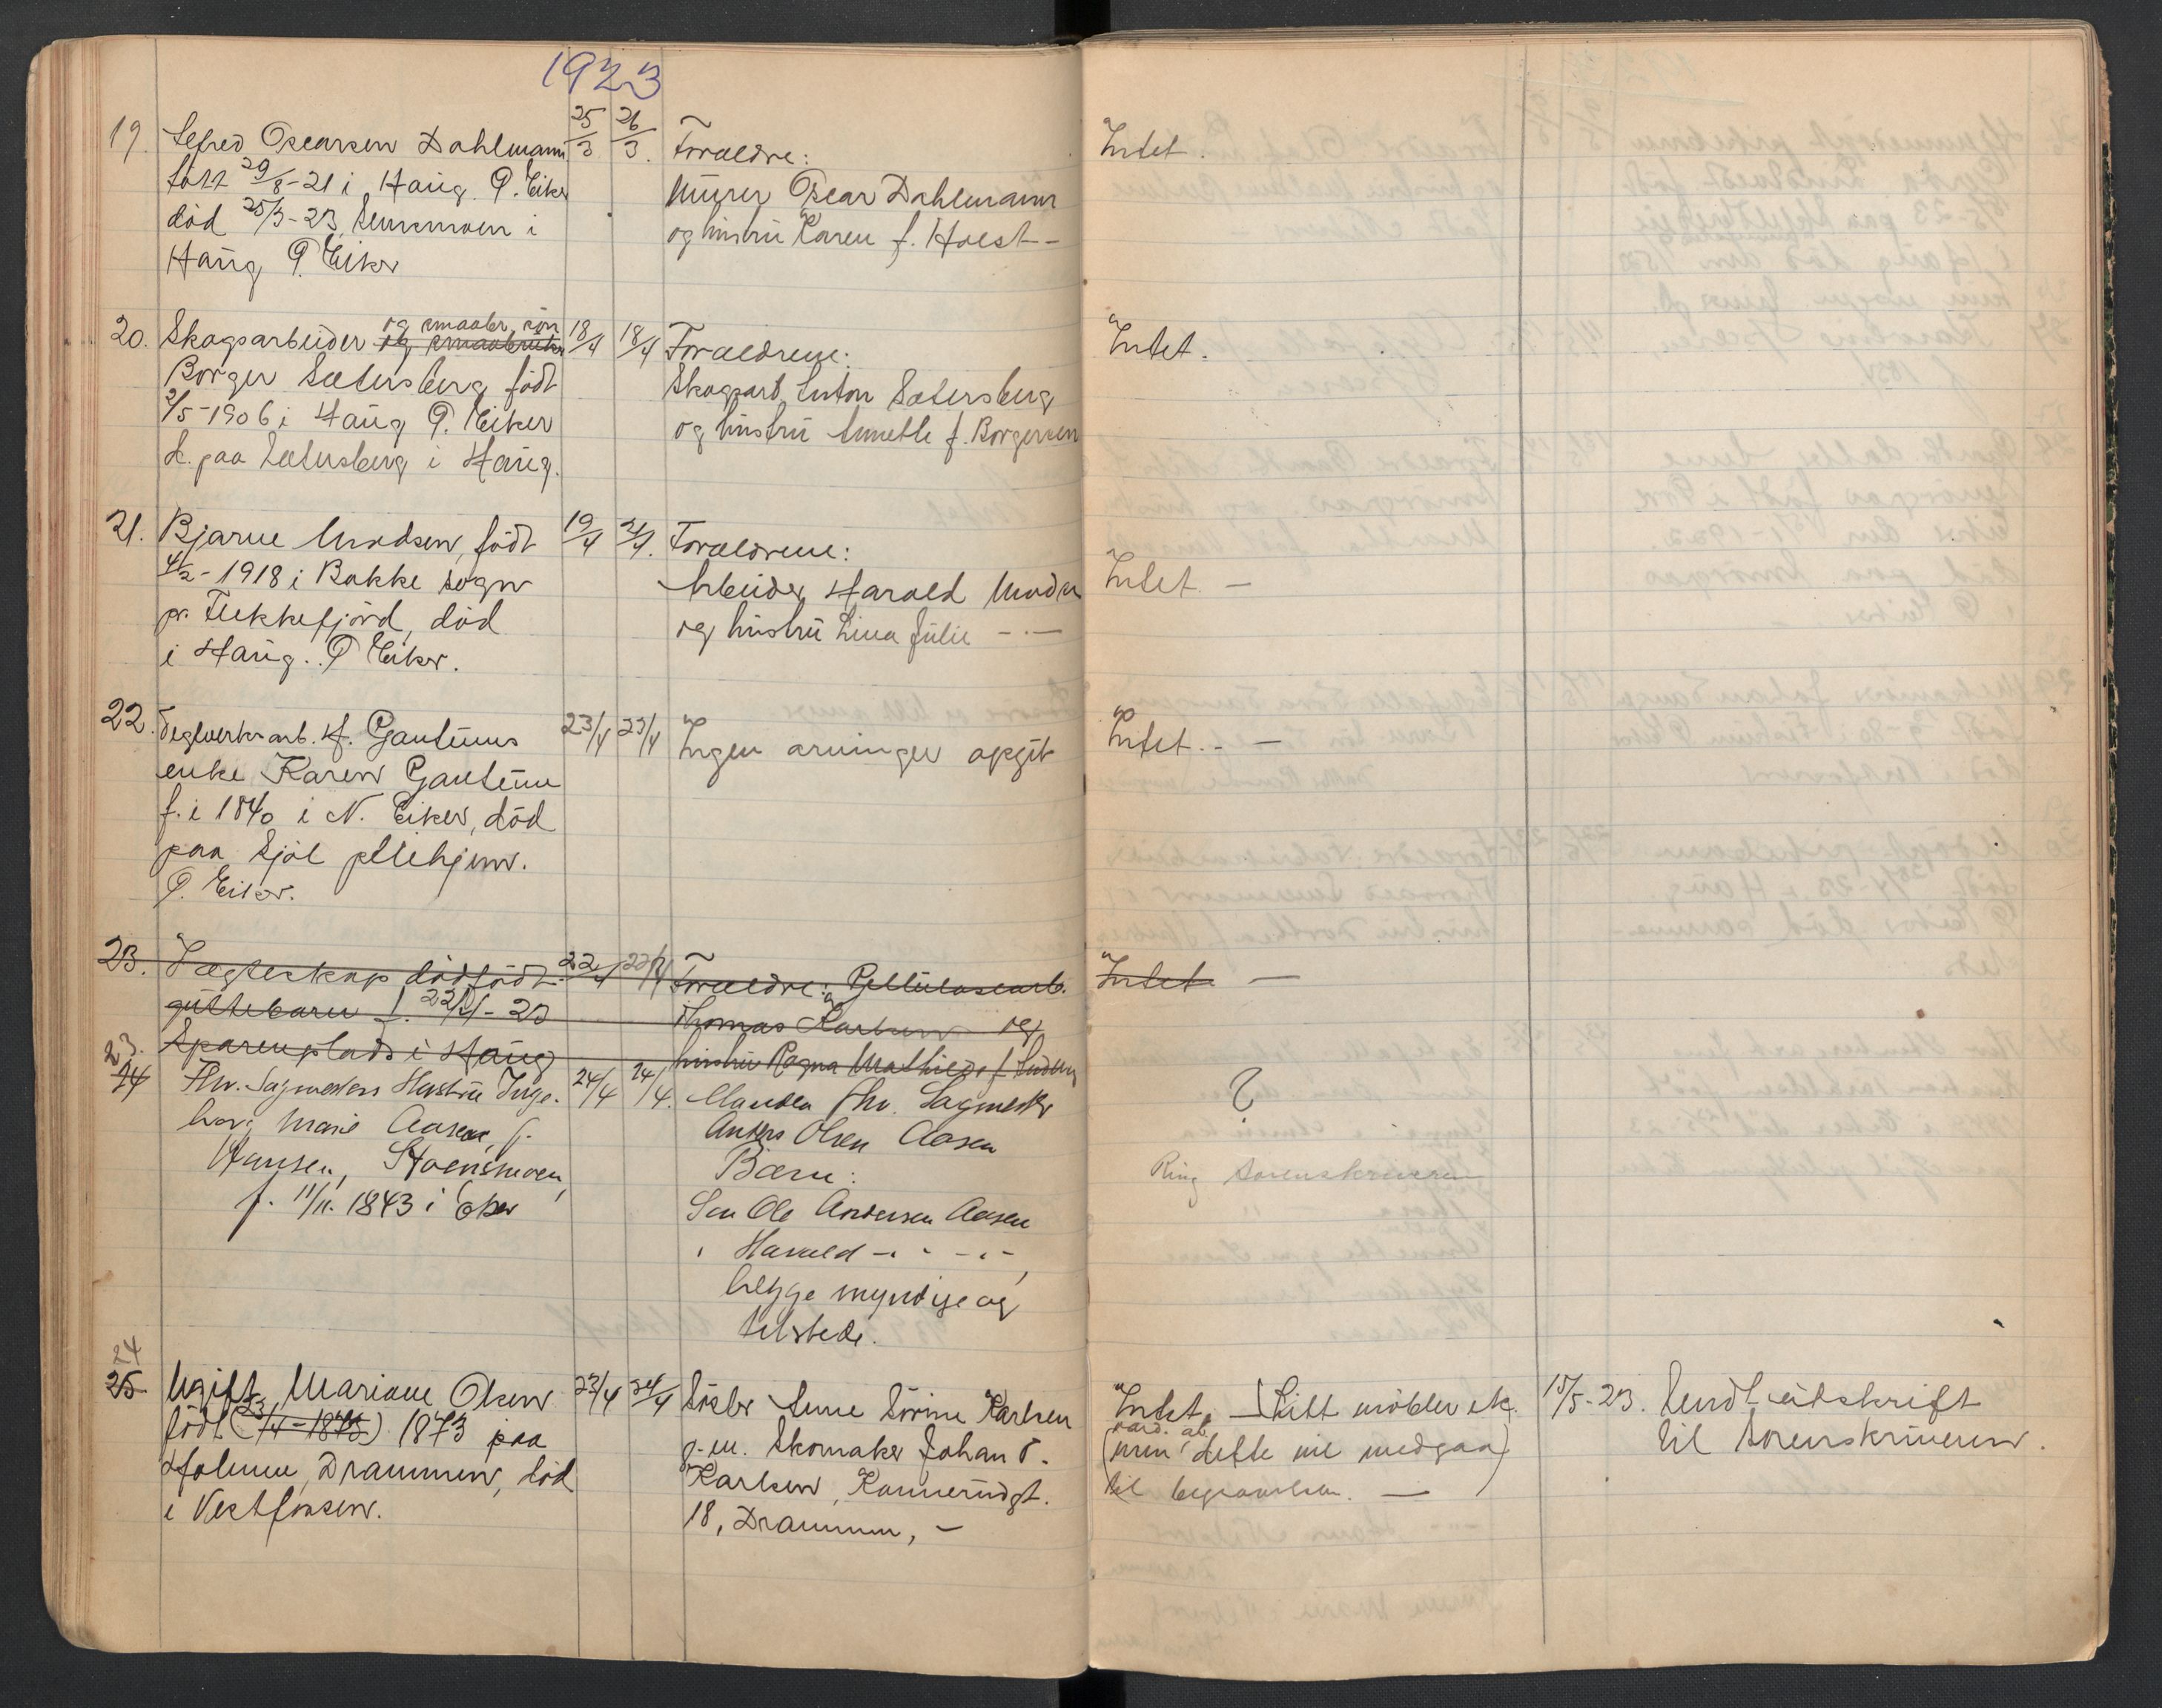 1923
19. Alfred Oscarsen Dahlmann 25/3 26/3. Forældre: Intet.
født 29/8-21 i Haug Ø. Eiker Murer Oscar Dahlmann
død 25/3-23, i og hustru Karen f. Holst -
Haug Ø. Eiker
20. Skogsarbeider og smaabr. søn 18/4 18/4 Forældrene: Intet.
Borger Sætersberg født Skogsarb. Anton Sætersberg
2/5-1906 i Haug Ø. Eiker og hustru Annette f. Borgersen
d. paa Sætersberg i Haug.
21. Bjarne Amodsen, født 19/4 21/4. Forældrene:
4/2-1918 i Bakke sogn Arbeider Harald Intet. -
pr. Flekkefjord, død og hustru Lina Julie - . -
i Haug. Ø Eiker.
22. Teglverksarb. H. Gautiums 23/4 23/4 Ingen arvinger opgit Intet. - -
enke Karen Gautium
f. i 1840 i N. Eiker, død
paa Sjøl pleiehjem.
Ø. Eiker.
23. I ægteskap dødfødt 22/4 22/4 Forældre: Cellulosearb. Intet -
guttebarn f. 22/4-23 Thomas Karlsen og
Sparenplads i Haug hustru Ragna Mathilde f.
23.
24 Fhv. Sagmesters Hustru Inge- 24/4 24/4. Manden fhv. Sagmester ?
borg Marie Aasen, f. Anders Olsen Aasen
Hansen, Stoensmoen, Børn: Ring Sorenskriveren
f. 11/11. 1843 i Eker Søn Ole Andersen Aasen
" Harald - " - " -,
begge myndige og
tilstede.
24
25. Ugift Mariane Olsen 23/4 24/4 Søster Anne Sørine Karlsen Intet, - Litt møbler etc. 15/5-23. Sendt utskrift
født (23/4-1873) 1873 paa g.m. Skomaker Johan O. (men dette vil medgaa) til Sorenskriveren.
Holmen, Drammen, død Karlsen, Konnerudgt. til begravelsen. -
i Vestfossen. 18, Drammen, -